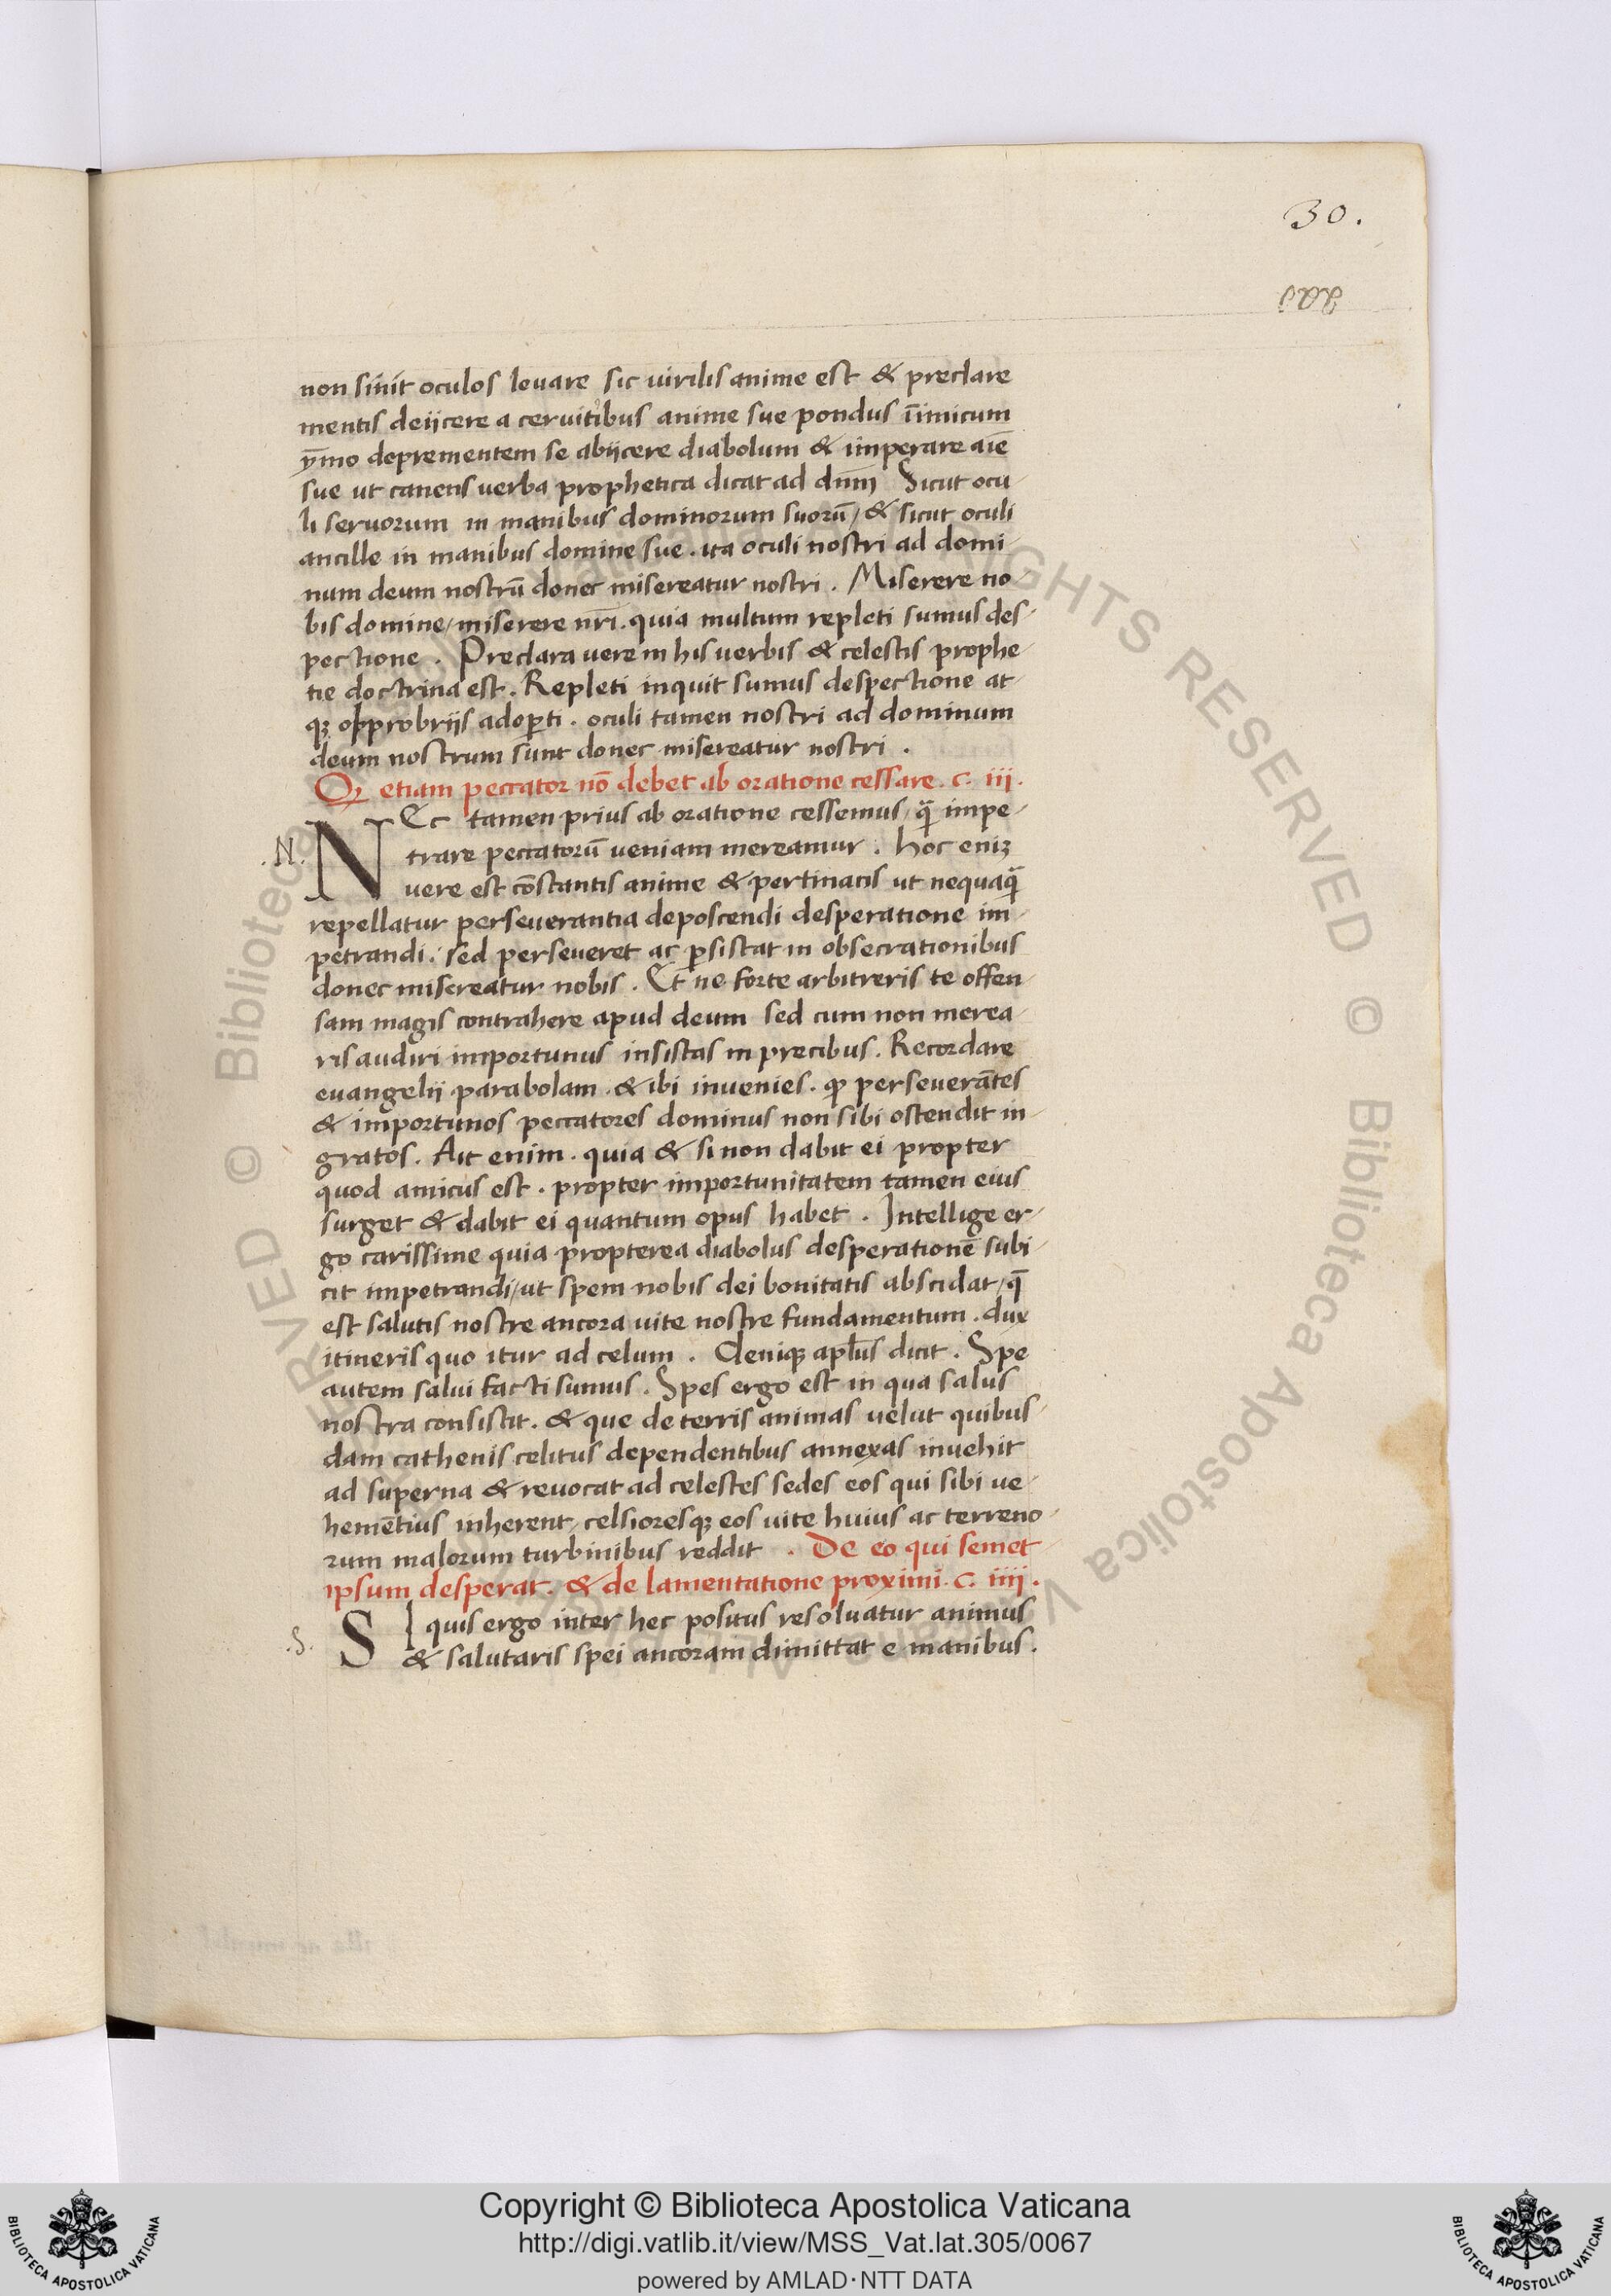 30.
non sinit oculos leuare sic uirilis anime est & preclare
mentis deijcere a ceruitibus anime sue pondus īimicum
ȳmo deprementem se abijcere diabolum & imperare aīe
sue ut canens uerba prophetica dicat ad dnm̄ Sicut ocu-
li seruorum in manibus dominorum suorū / & sicut oculi
ancille in manibus domine sue . ita oculi nostri ad domi-
num deum nostrū donec misereatur nostri . Miserere no-
bis domine / miserere nr̄i . quia multum repleti sumus des-
pectione . Preclara uere in his uerbis & celestis prophe-
tie doctrina est . Repleti inquit sumus despectione at-
qꝫ opprobrijs adoꝑti . oculi tamen nostri ad dominum
deum nostrum sunt donec misereatur nostri .
Qꝫ etiam peccator nō debet ab oratione cessare . c. iij .
NEc tamen prius ab oratione cessemus / qȝ̄ impe-
.N.
trare peccatorū ueniam mereamur . hoc eniꝫ
uere est cōstantis anime & pertinacis ut nequaq̄
repellatur perseuerantia deposcendi desperatione im-
petrandi . sed perseueret ac ꝑsistat in obsecrationibus
donec misereatur nobis . Et ne forte arbitreris te offen-
sam magis contrahere apud deum sed cum non merea-
ris audiri importunus insistas in precibus . Recordare
euangelij parabolam . & ibi inuenies . ꝙ perseuerātes
& importunos peccatores dominus non sibi ostendit in-
gratos . Ait enim . quia & si non dabit ei propter
quod amicus est . propter importunitatem tamen eius
surget & dabit ei quantum opus habet . Intellige er-
go carissime quia propterea diabolus desperationē subi-
cit impetrandi / ut spem nobis dei bonitatis abscidat / q̄
est salutis nostre ancora uite nostre fundamentum . dux
itineris quo itur ad celum . Deniqꝫ apl̄us dicit . Spe
autem salui facti sumus . Spes ergo est in qua salus
nostra consistit . & que de terris animas uelut quibus-
dam cathenis celitus dependentibus annexas inuehit
ad superna & reuocat ad celestes sedes eos qui sibi ue-
hemētius inherent / celsioresqꝫ eos uite huius ac terreno-
rum malorum turbinibus reddit . De eo qui semet
ipsum desperat . & de lamentatione proximi . c. iiij .
SI quis ergo inter hec positus resoluatur animus
.S.
& salutaris spei ancoram dimittat e manibus .
© Biblioteca Apostolica Vaticana
ALL RIGHTS RESERVED
Copyright © Biblioteca Apostolica Vaticana
http://digi.vatlib.it/view/MSS_Vat.lat.305/0067
powered by AMLAD·NTT DATA
BIBLIOTECA APOSTOLICA VATICANA
BIBLIOTECA APOSTOLICA VATICANA